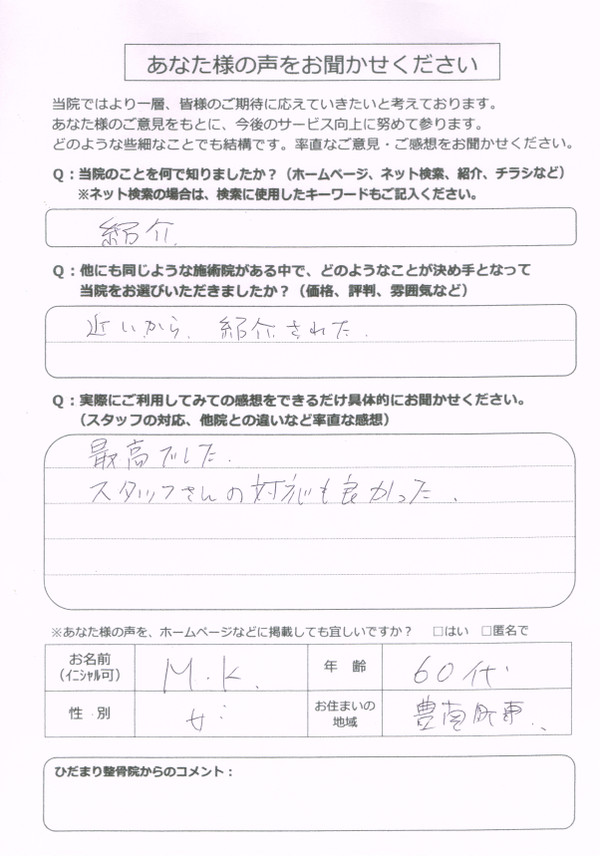 あなた様の声をお聞かせください
当院ではより一層、皆様のご期待に応えていきたいと考えております。
あなた様のご意見をもとに、今後のサービス向上に努めて参ります。
どのような些細なことでも結構です。率直なご意見・ご感想をお聞かせください。
Q：当院のことを何で知りましたか？（ホームページ、ネット検索、紹介、チラシなど）
※ネット検索の場合は、検索に使用したキーワードもご記入ください。
紹介
Q：他にも同じような施術院がある中で、どのようなことが決め手となって
当院をお選びいただきましたか？（価格、評判、雰囲気など）
近いから、紹介された.
Q：実際にご利用してみての感想をできるだけ具体的にお聞かせください。
（スタッフの対応、他院との違いなど率直な感想）
最高でした.
スタッフさんの対応も良かった.
※あなた様の声を、ホームページなどに掲載しても宜しいですか？ □はい □匿名で
お名前 M.K. 年 齢 60代
（ｲﾆｼｬﾙ可）
性 別 女 お住まいの 豊南町東
地域
ひだまり整骨院からのコメント：